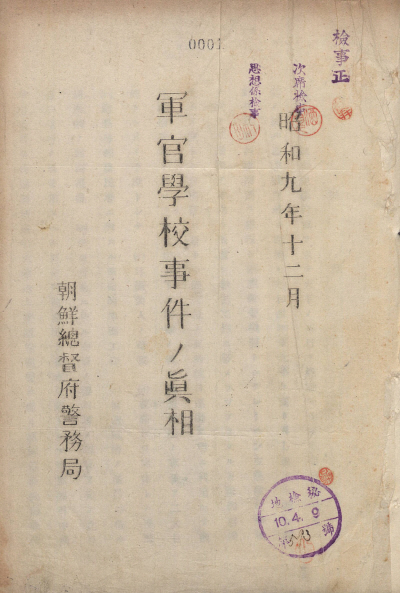 0001
檢事正
次席檢事
思想係檢事
昭和九年十二月
軍官學校事件ノ眞相
朝鮮總督府警務局
地檢秘
10.4.9
號